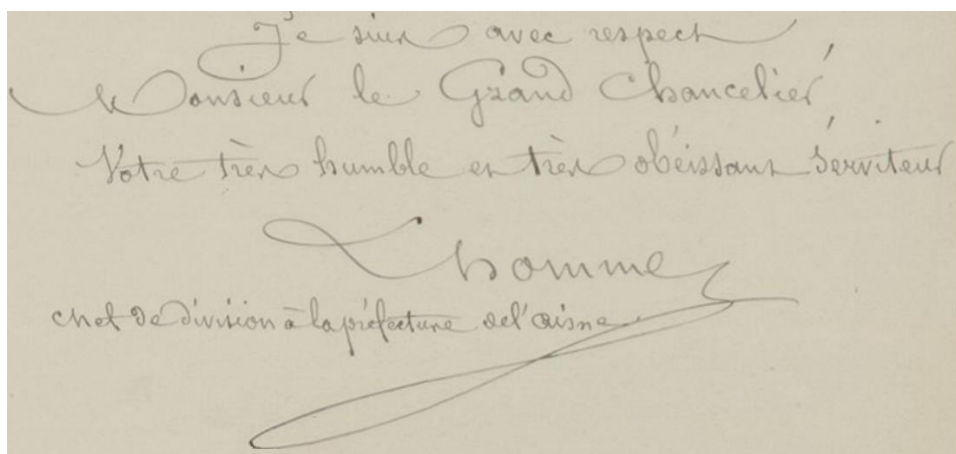 Je suis avec respect
Monsieur le Grand Chancelier,
Votre très humble et très obéissant serviteur
Lhomme
chef de division à la préfecture de l'aisne